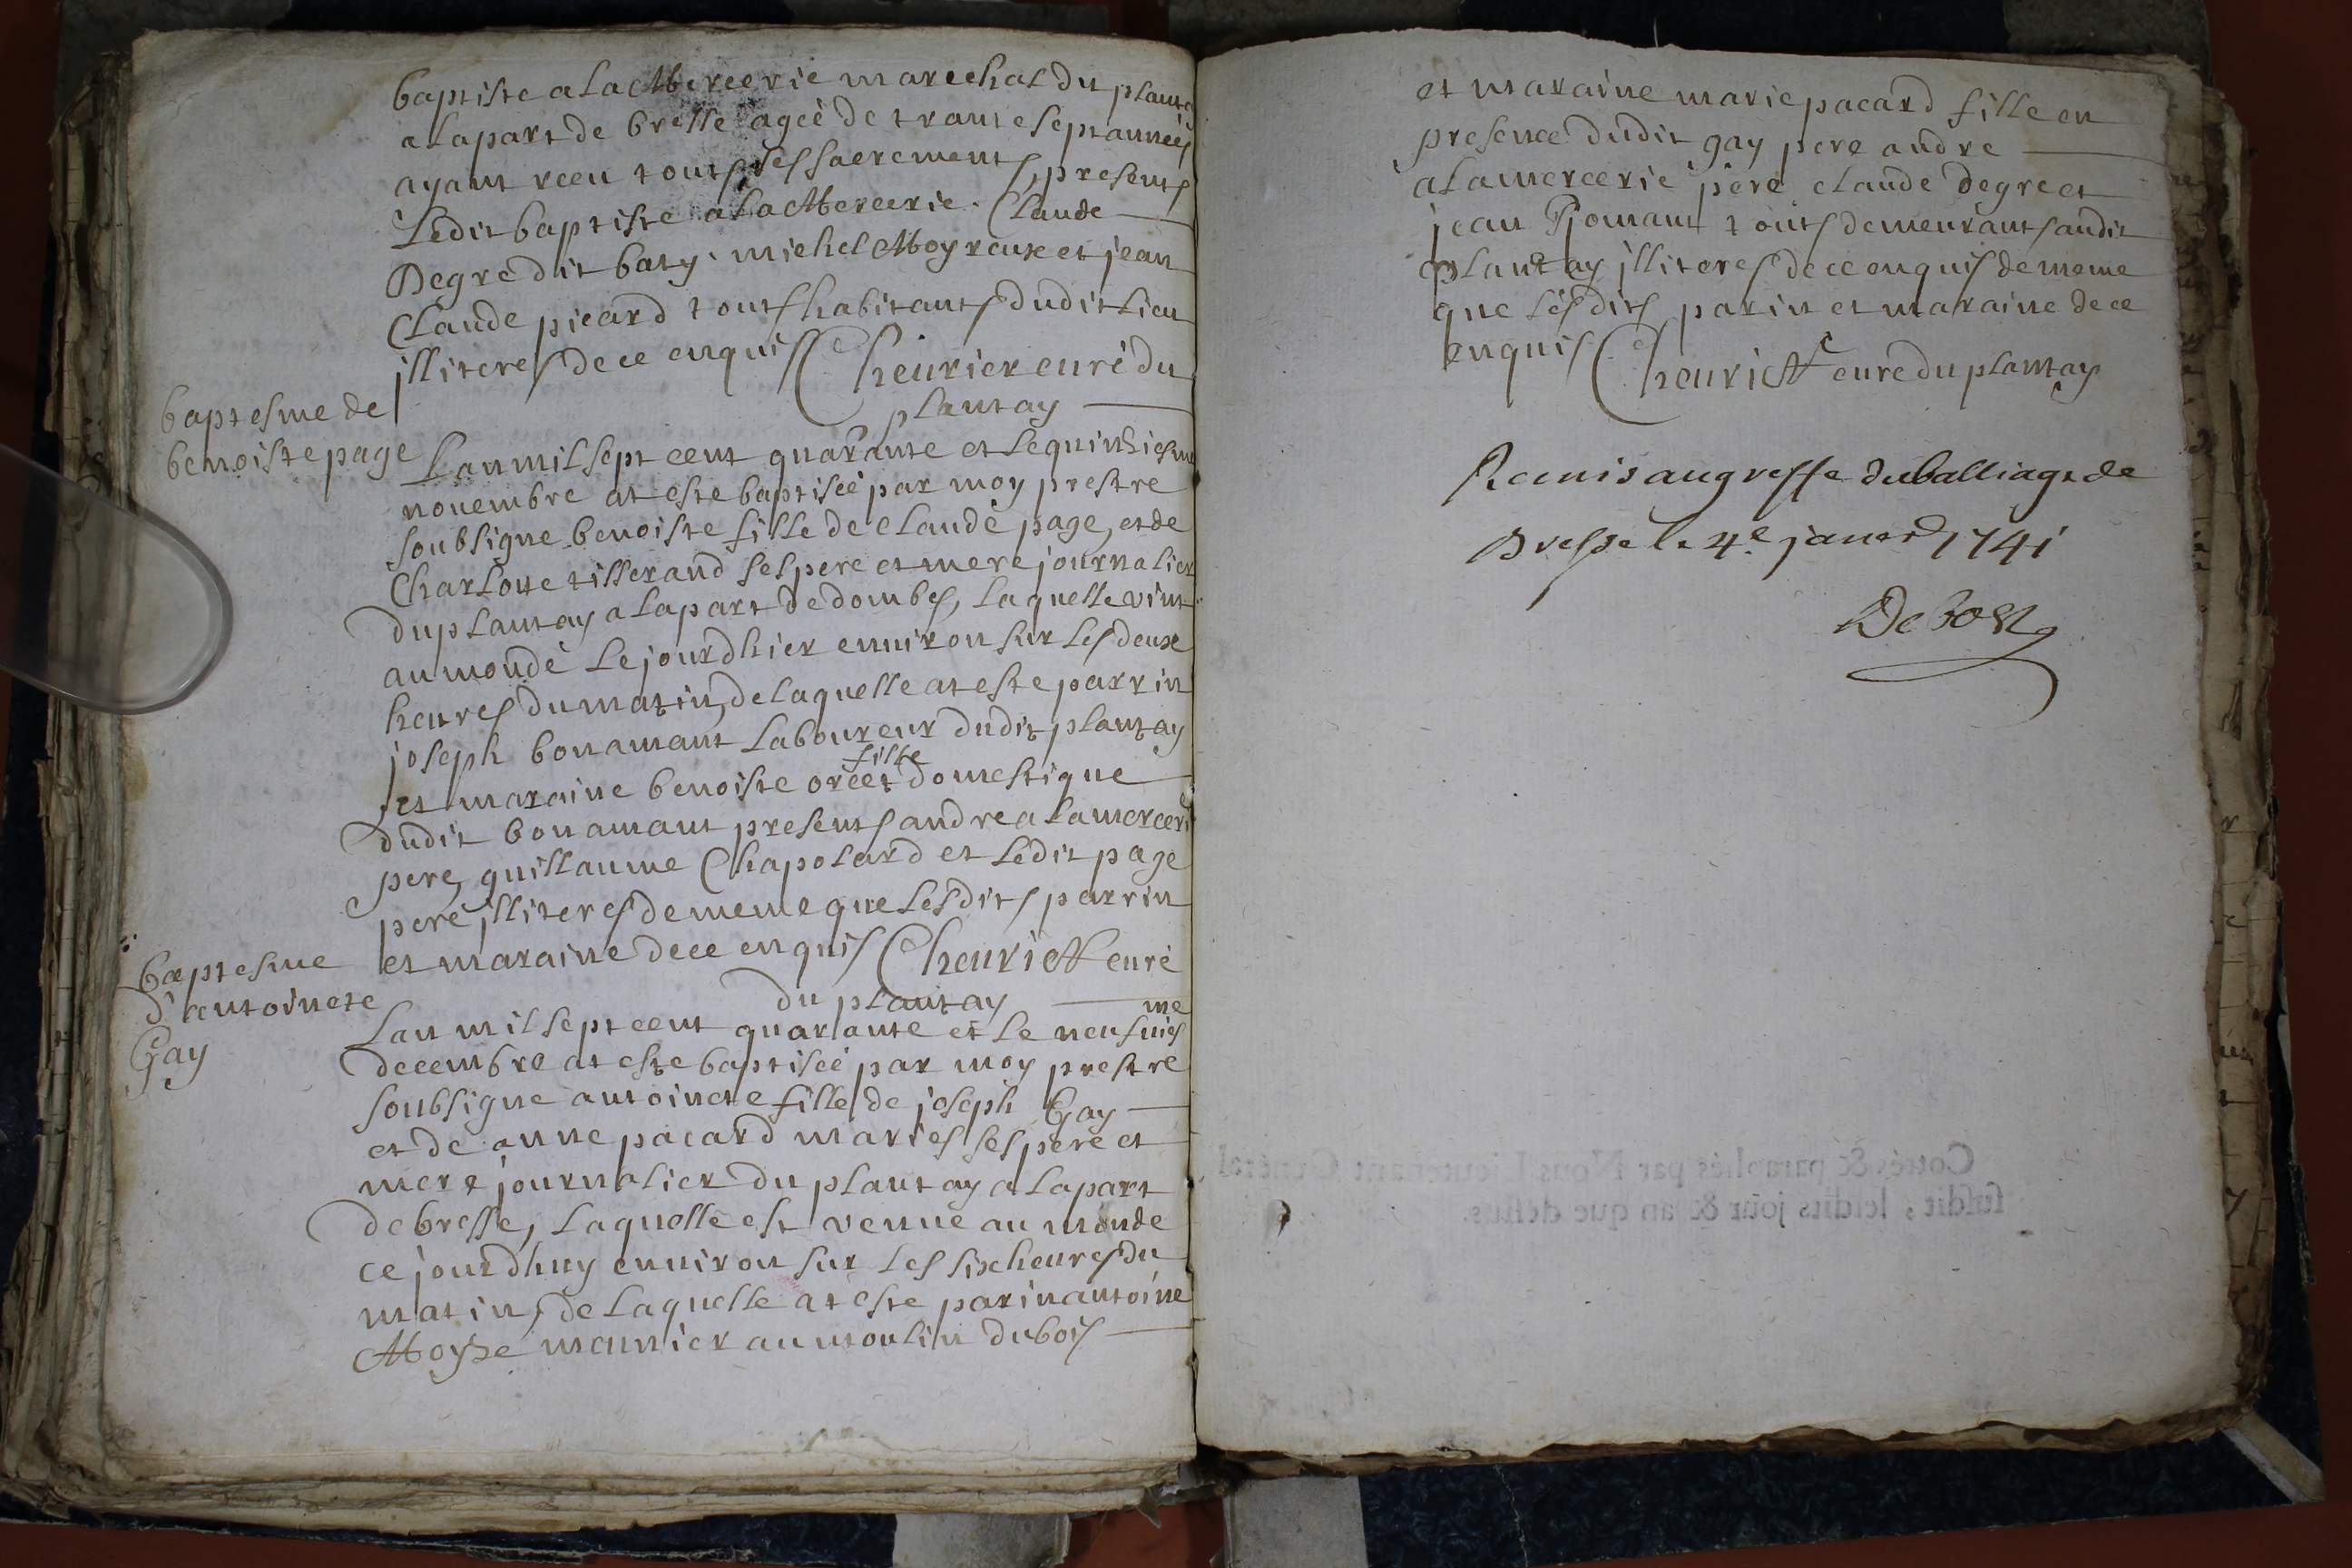 baptiste a la Mercerie marechal du plantay
a la part de bresse agéé de trante sept années
ayant receu touts ses sacrements, presents
Ledit baptiste a la Mercerie. Claude
Degre dit baty. michel Moyreux et jean
Claude picard touts habitants dudit Lieu
jlliteres de ce enquis Cheurier curé du
plantay
baptesme de
benoiste page
Lan mil sept cent quarante et le quinsiesme
nouembre at este baptiséé par moy prestre
soubsigne benoiste fille de claude page, et de
Charlotte tillerand ses pere et mere journalier
du plantay a la part de dombes, laquelle vint
au monde le jourdhier enuiron sur les deux
heures du matin, de laquelle at este parrin
joseph bonamant Laboureur dudit plantay
et maraine benoiste orcet fille domestique
dudit bonamant presents andre a la mercerie
pere, guillaume Chapolard et ledit page
pere jlliteres de meme que lesdits parrin
et maraine de ce enquis Cheurier curé
du plantay
baptesme
d'antoinete
Gay
Lan mil sept cent quarante et le neufuiesme
decembre at este baptiséé par moy prestre
soubsigne antoinete fille de joseph Gay
et de anne pacard maries ses pere et
mere journalier du plantay a la part
de bresse, laquelle est venue au monde
ce jourdhuy enuiron sur les six heures du
matin, de laquelle at este parin antoine
Moyze meunier au moulin du bois
et maraine marie pacard fille en
presence dudit gay pere andre
a la mercerie pere claude degre et
jean Romant touts demeurants audit
plantay jlliteres de ce enquis de meme
que lesdits parin et maraine de ce
enquis Cheurier cure du plantay
Remis au greffe du balliage de
Bresse le 4e janer 1741
Debost
Cottés & paraphés par Nous Lieutenant Général
susdit, lesdits jour & an que dessus.